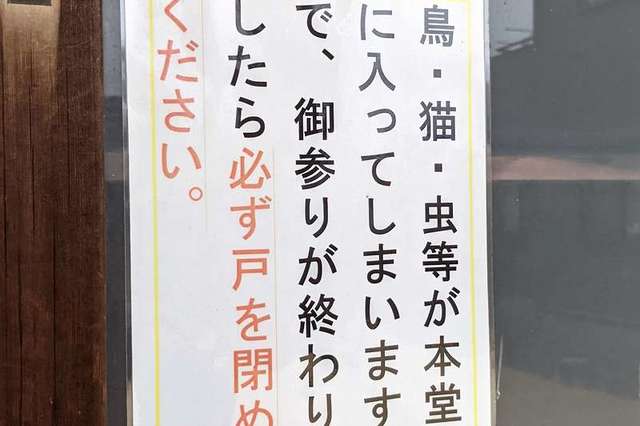 鳥・猫・虫等が本堂
に入ってしまいます
で、御参りが終わり
したら必ず戸を閉め
ください。